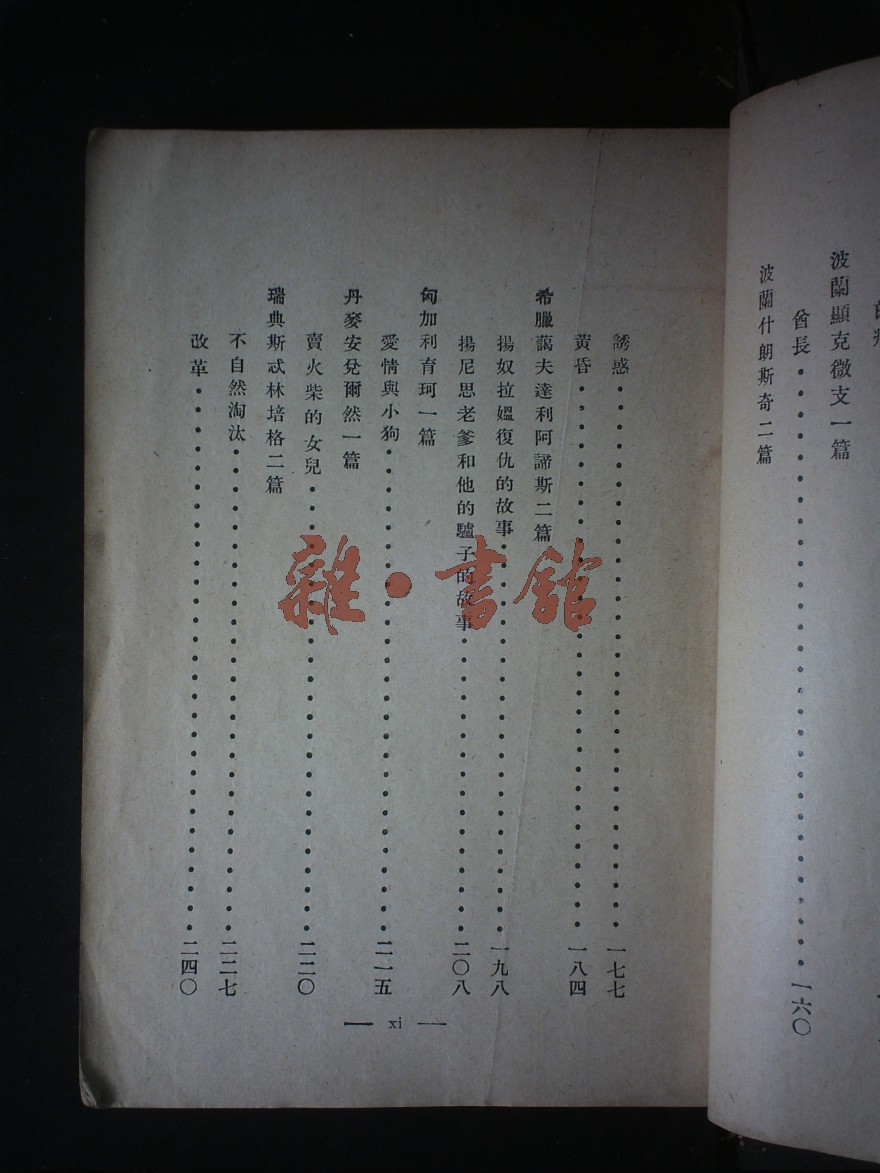 波蘭顯克微支一篇
酋長・・・・・・・・・・・・・・・・・・・・・・一六〇
波蘭什朗斯奇二篇
誘惑・・・・・・・・・・・・・・・・・・・・・・一七七
黄昏・・・・・・・・・・・・・・・・・・・・・・一八四
希臘藹夫達利阿諦斯二篇
揚奴拉媼復仇的故事・・・・・・・・・・・・・・・・・一九八
揚尼思老爹和他的驢子的故事・・・・・・・・・・・・・二〇八
匈加利育珂一篇
愛情與小狗・・・・・・・・・・・・・・・・・・・・二一五
丹麥安兌爾然一篇
賣火柴的女兒・・・・・・・・・・・・・・・・・・・二二〇
瑞典斯忒林培格二篇
不自然淘汰・・・・・・・・・・・・・・・・・・・・二二七
改革・・・・・・・・・・・・・・・・・・・・・・二四〇
— xi —
雜・書館